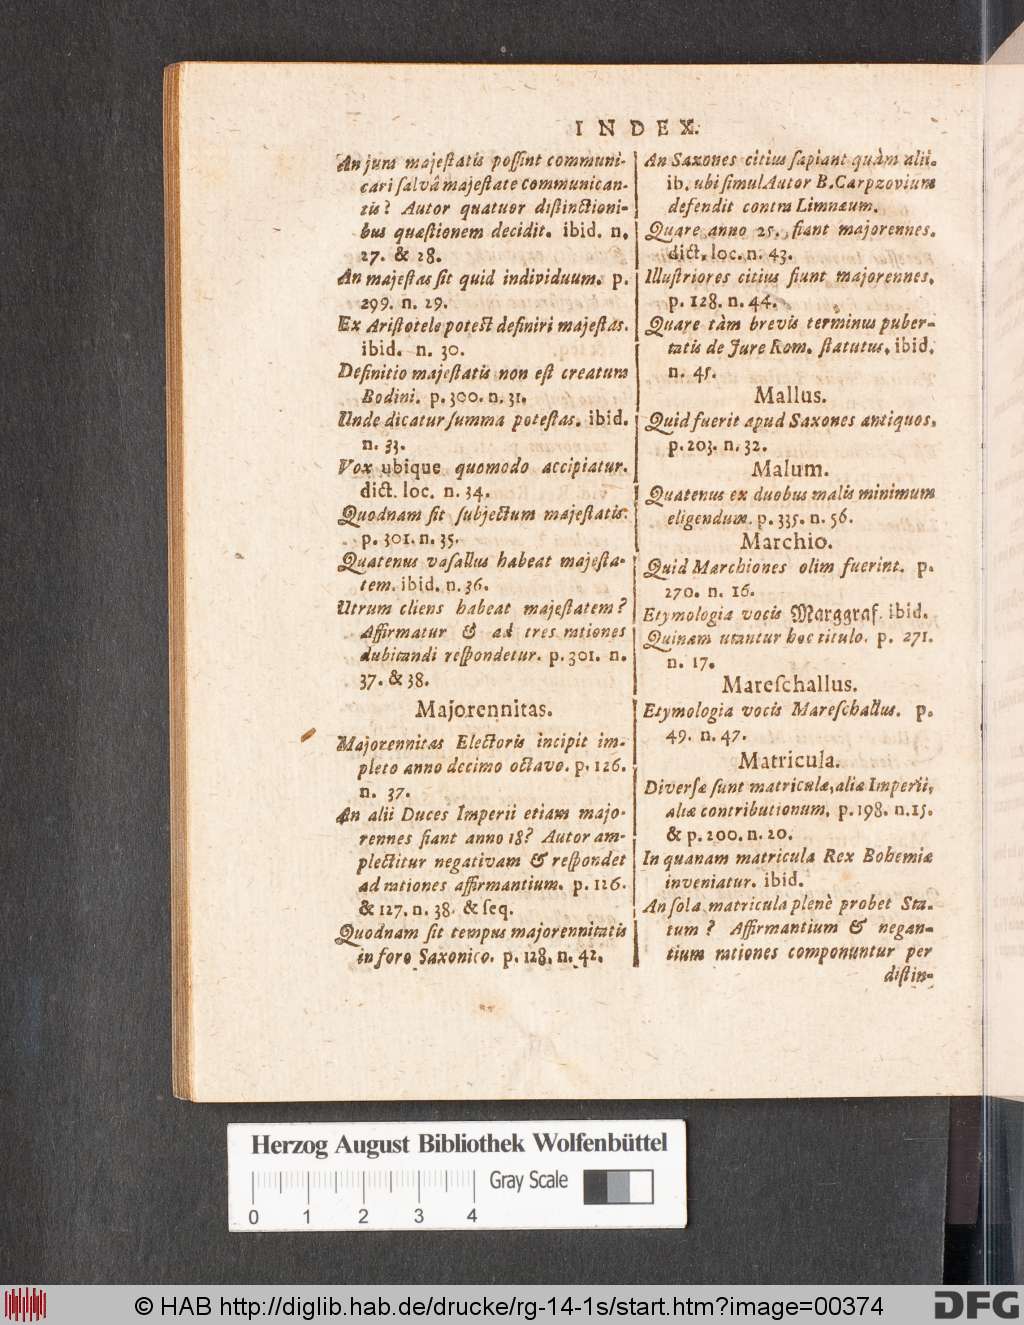 INDEX.
An jura majeſtatis poſſint communi-
cari ſalvâ majeſtate communican-
tis? Autor quatuor diſtinctioni-
bus quæſtionem decidit. ibid. n.
27. & 28.
An majeſtas ſit quid individuum. p.
299. n. 29.
Ex Ariſtotele poteſt definiri majeſtas.
ibid. n. 30.
Definitio majeſtatis non eſt creatura
Bodini. p. 300. n. 31.
Unde dicatur ſumma poteſtas. ibid.
n. 33.
Vox ubique quomodo accipiatur.
dict. loc. n. 34.
Quodnam ſit ſubjectum majeſtatis.
p. 301. n. 35.
Quatenus vaſallus habeat majeſta-
tem. ibid. n. 36.
Utrum cliens habeat majeſtatem?
Affirmatur & ad tres rationes
dubitandi reſpondetur. p. 301. n.
37. & 38.
Majorennitas.
Majorennitas Electoris incipit im-
pleto anno decimo octavo. p. 126.
n. 37.
An alii Duces Imperii etiam majo-
rennes fiant anno 18? Autor am-
plectitur negativam & reſpondet
ad rationes affirmantium. p. 126.
& 127. n. 38. & ſeq.
Quodnam ſit tempus majorennitatis
in foro Saxonico. p. 128. n. 42.
An Saxones citius ſapiant quàm alii.
ib. ubi ſimul Autor B. Carpzovium
defendit contra Limnæum.
Quare anno 25. fiant majorennes.
dict. loc. n. 43.
Illuſtriores citius fiunt majorennes.
p. 128. n. 44.
Quare tàm brevis terminus puber-
tatis de Jure Rom. ſtatutus. ibid.
n. 45.
Mallus.
Quid fuerit apud Saxones antiquos.
p. 203. n. 32.
Malum.
Quatenus ex duobus malis minimum
eligendum. p. 335. n. 56.
Marchio.
Quid Marchiones olim fuerint. p.
270. n. 16.
Etymologia vocis Marggraf. ibid.
Quinam utantur hoc titulo. p. 271.
n. 17.
Mareſchallus.
Etymologia vocis Mareſchallus. p.
49. n. 47.
Matricula.
Diverſæ ſunt matriculæ, aliæ Imperii,
aliæ contributionum. p. 198. n. 15.
& p. 200. n. 20.
In quanam matricula Rex Bohemiæ
inveniatur. ibid.
An ſola matricula plenè probet Sta-
tum? Affirmantium & negan-
tium rationes componuntur per
diſtin-
Herzog August Bibliothek Wolfenbüttel
Gray Scale
0 1 2 3 4
© HAB http://diglib.hab.de/drucke/rg-14-1s/start.htm?image=00374
DFG